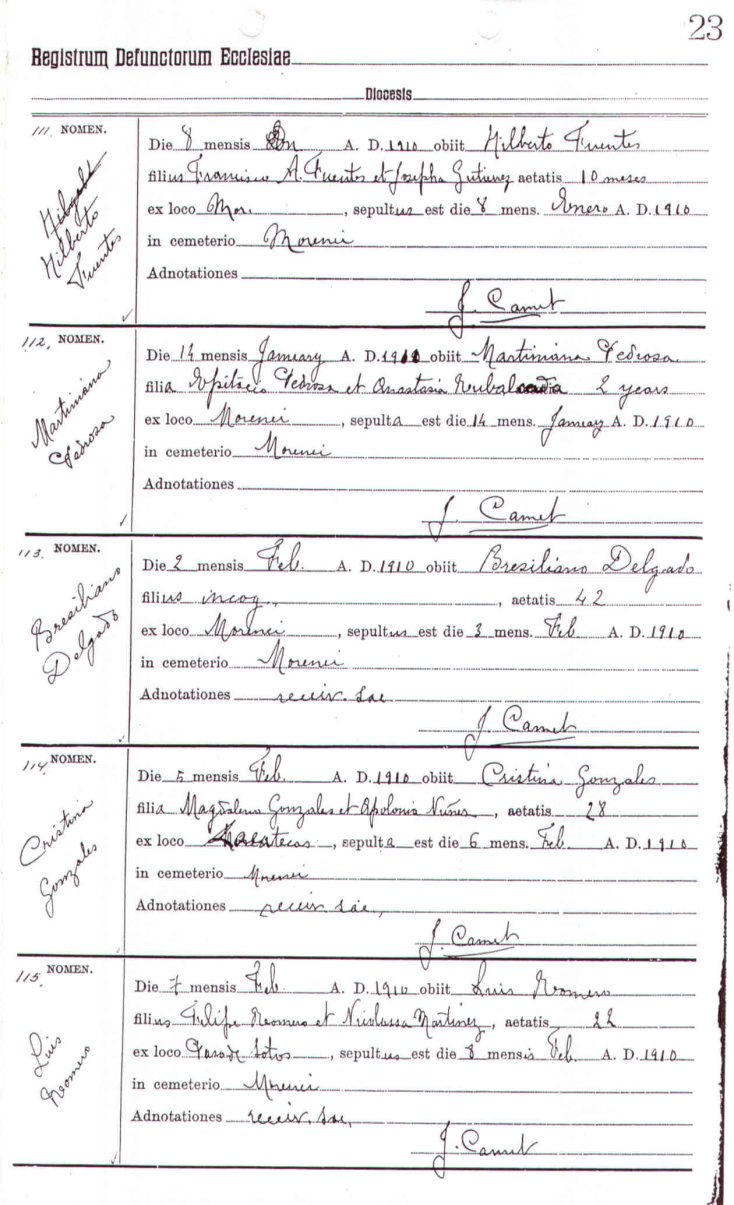 23
Registrum Defunctorum Ecclesiae
Diocesis
111. NOMEN.
Hilberto
Fuentes
Die 8 mensis A. D. 1910 obiit Hilberto Fuentes
filius Francisco A. Fuentes et Josepha Gutierrez aetatis 10 meses
ex loco Mor. , sepultus est die 8 mens. Enero A. D. 1910
in cemeterio Morenci
Adnotationes
J. Camet
112. NOMEN.
Martiniana
Pedrosa
Die 14 mensis January A. D. 1910 obiit Martiniana Pedrosa
filia Epitacio Pedrosa et Anastasia 2 years
ex loco Morenci , sepulta est die 14 mens. January A. D. 1910
in cemeterio Morenci
Adnotationes
J. Camet
113. NOMEN.
Bresiliano
Delgado
Die 2 mensis Feb. A. D. 1910 obiit Bresiliano Delgado
filius incog. , aetatis 42
ex loco Morenci , sepultus est die 3 mens. Feb A. D. 1910
in cemeterio Morenci
Adnotationes receiv. Sac
J. Camet
114. NOMEN.
Cristina
Gonzales
Die 5 mensis Feb. A. D. 1910 obiit Cristina Gonzales
filia Magdaleno Gonzales et Apolonia Nuñes , aetatis 28
ex loco Zacatecas , sepulta est die 6 mens. Feb. A. D. 1910
in cemeterio Morenci
Adnotationes receiv. Sac,
J. Camet
115. NOMEN.
Luis
Romero
Die 7 mensis Feb. A. D. 1910 obiit Luis Romero
filius Felipe Romero et Nicolassa Martinez , aetatis 22
ex loco , sepultus est die 8 mensis Feb. A. D. 1910
in cemeterio Morenci
Adnotationes receiv. Sac,
J. Camet